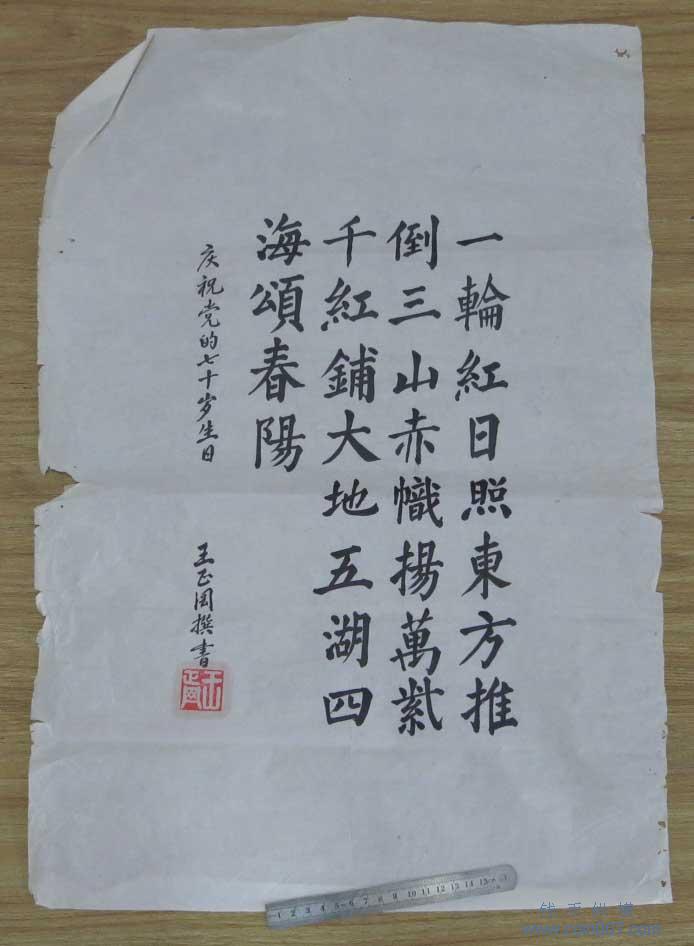 一輪紅日照東方推
倒三山赤幟揚萬紫
千紅鋪大地五湖四
海頌春陽
庆祝党的七十岁生日
王正国撰书
1 2 3 4 5 6 7 8 9 10 11 12 13 14 15